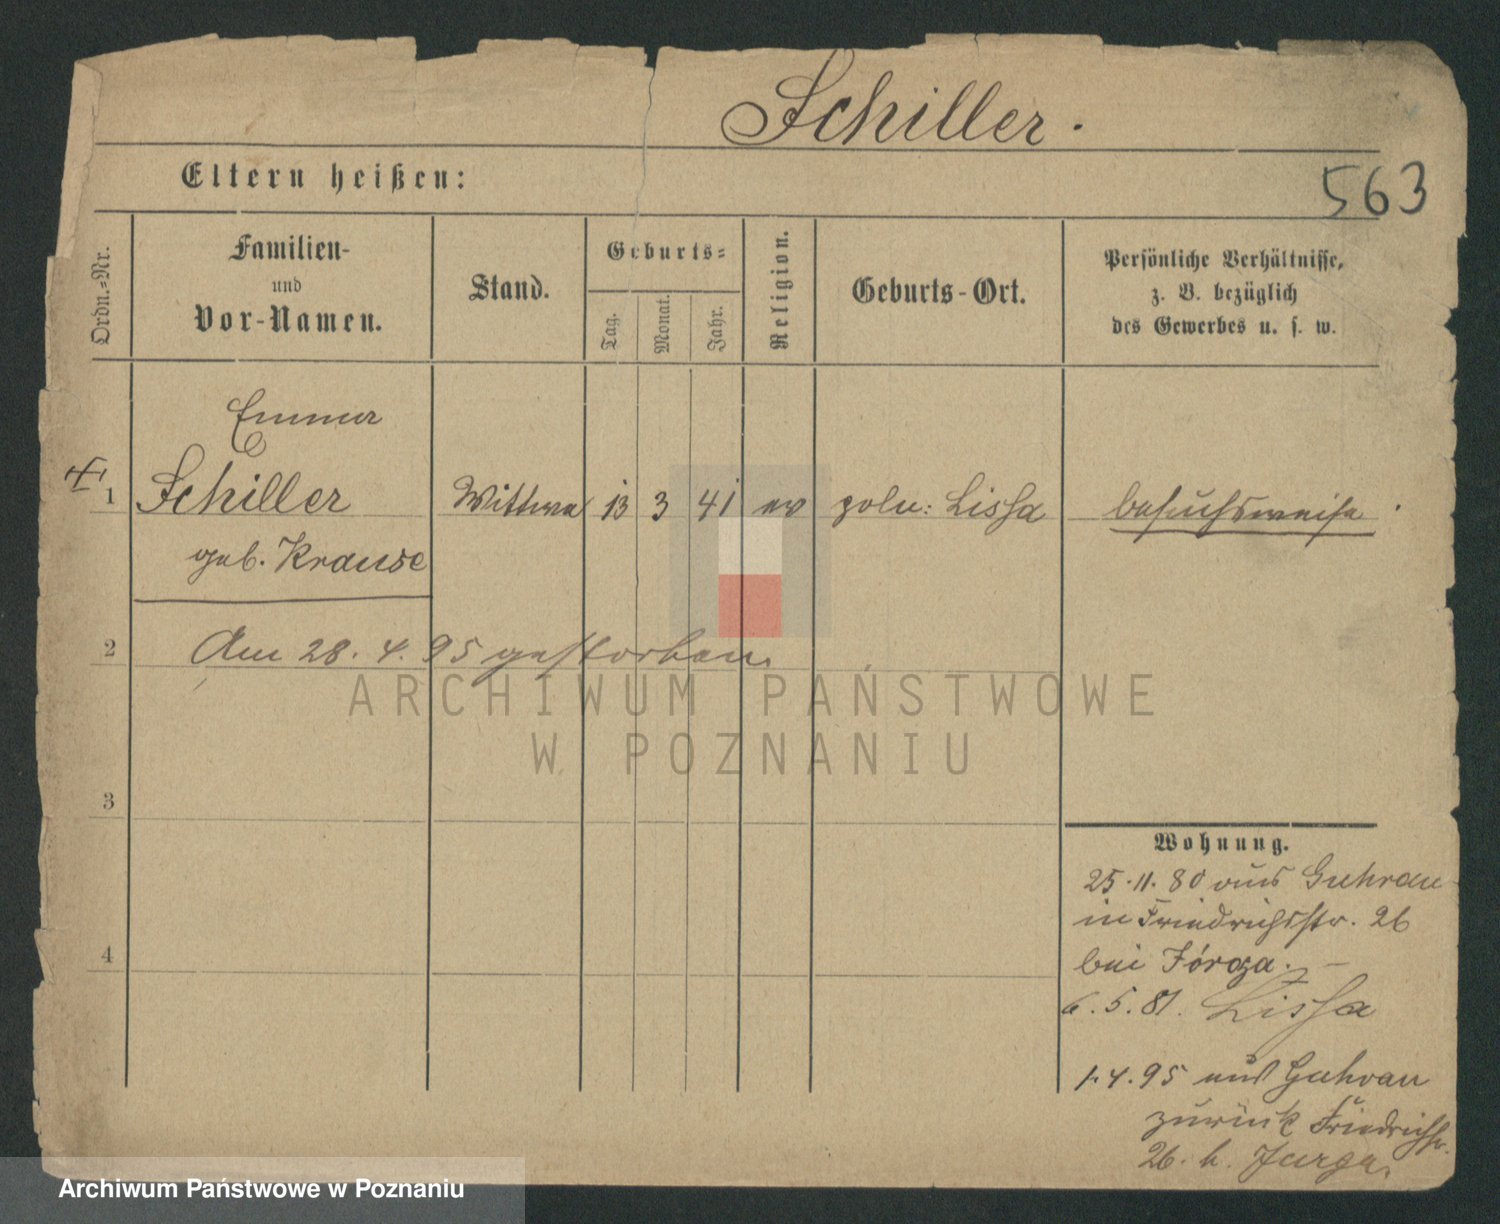 Schiller.
563
Eltern heißen:
Ordn.=Nr.
Familien-
und
Vor-Namen.
Stand.
Geburts=
Tag.
Monat.
Jahr.
Religion.
Geburts-Ort.
Persönliche Verhältnisse,
z. B. bezüglich
des Gewerbes u. s. w.
Emma
1 Schiller Wittwe 13 3 41 ev poln: Lissa besuchsweise.
geb. Krause
2 Am 28. 4. 95 gestorben.
ARCHIWUM PAŃSTWOWE
W POZNANIU
3
Wohnung.
25.11.80 aus Guhrau
in Friedrichsstr. 26
4
bei Jórga. –
6.5.81. Lissa
1.4.95 aus Guhrau
zurück Friedrichstr.
26. b. Jurga.
Archiwum Państwowe w Poznaniu